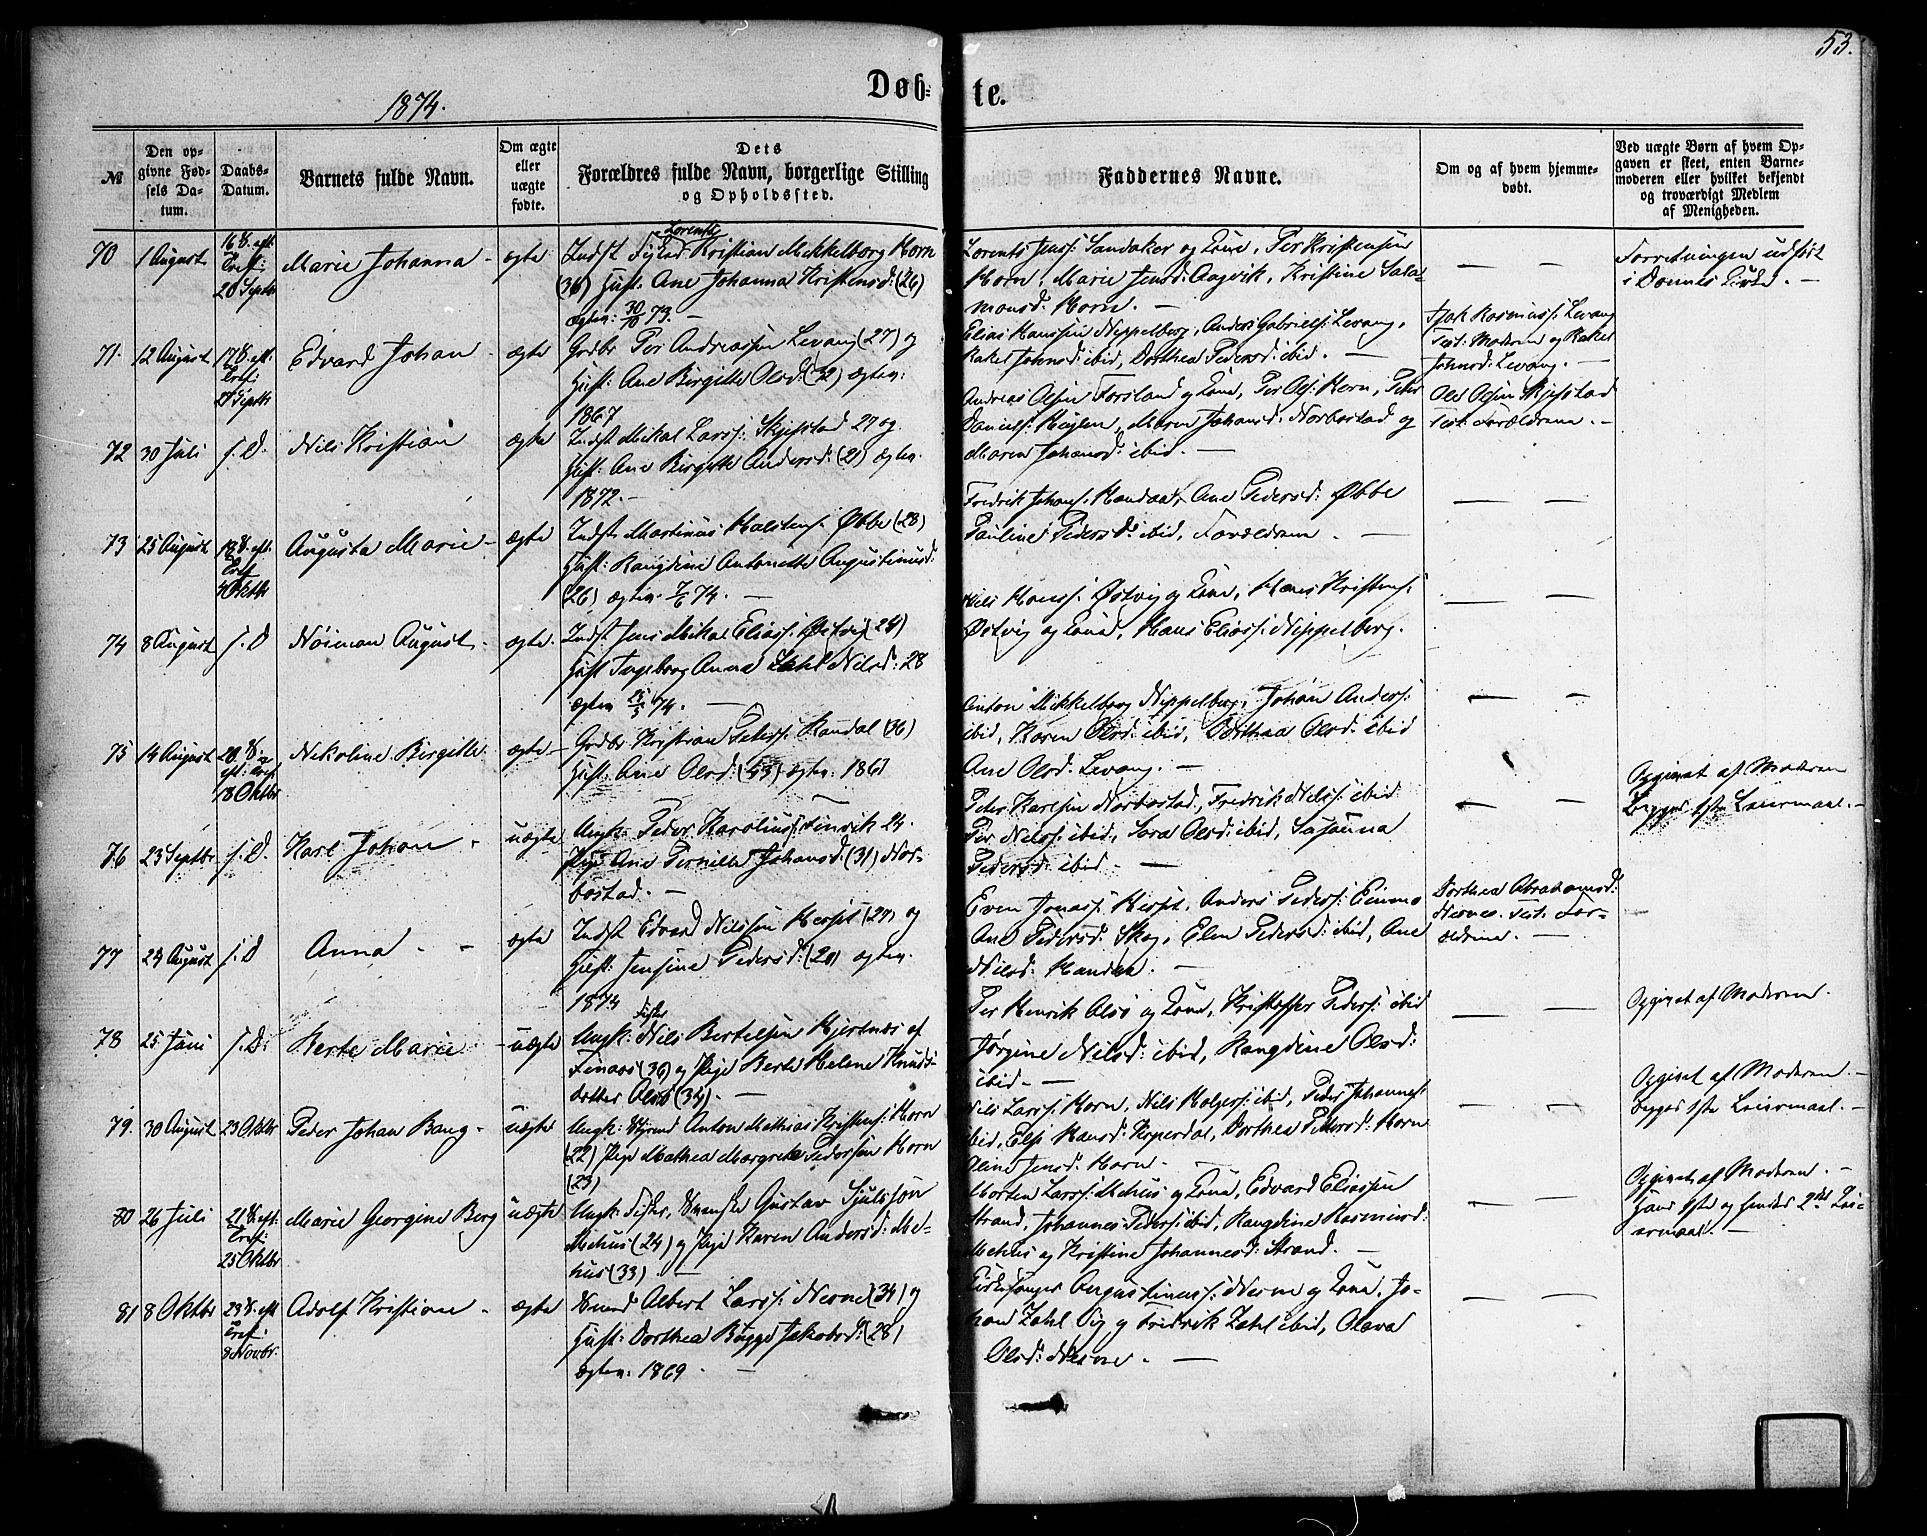 53.
1874.
Døb- te.
№
Den opgivne Fødsels Datum.
Daabs-Datum.
Barnets fulde Navn.
Om ægte eller uægte fødte.
Dets Forældres fulde Navn, borgerlige Stilling og Opholdssted.
Faddernes Navne.
Om og af hvem hjemmedøbt.
Ved uægte Børn af hvem Opgaven er skeet, enten Barnemoderen eller hvilket bekjendt og troværdigt Medlem af Menigheden.
70 1 August 16 S. eft. Tref. 20 Septbr Marie Johanna - ægte
Lorents
Kristian Mikkelborg Horn
(36) Hust: Ane Johanna Kristensd: (26)
ægtev: 30/10 73. -
Lorents Jenss: Sandaker og Kone, Per Kristensen
Horn, Marie Jensd: Aagvik, Kristine Sala-
monsd: Horn. -
Forretningen udført
i Dønnes Kirke. -
71. 12 August 17 S. eft. Tref: 27 Septbr Edvard Johan - ægte
Grdbr Per Andreassen Levang (27) og
Hust: Ane Birgitte Olsd: (32) ægtev:
1867
Elias Hanssen Nippelberg, Anders Gabriels: Levang,
Rakel Johnsd: ibid, Dorthea Pedersd: ibid. -
Isak Rasmuss: Levang
Test: Moderen og Rakel
Johnsd: Levang. -
72 30 Juli s. D. Nils Kristian ægte
Indst Mikal Larss: Skjefstad 27 og
Hust: Ane Birgitte Andersd: (21) ægtev.
1872. -
Andreas Olsen Forsland og Kone, Per Ols: Horn, Peder
Daniels: Haugen, Maren Johansd: Norbostad og
Maren Johansd: ibid. -
Ole Olsen Skjefstad
Test: Forældrene. -
73 25 August 18 S. eft. Tref 4 Oktbr Augusta Marie - ægte
Indst Martinus Halstens: Øbbe (28)
Hust: Rangdine Antonette Augustinusd:
(26) ægtev. 7/6 74. -
Fredrik Johans: Handaa, Ane Pedersd: Øbbe
Pauline Pedersd: ibid, Forældrene. -
74 8 August s. D Nøiman August - ægte.
Indst Jens Mikal Eliass: Østvig (28)
Hust Ingeborg Anna Nilsd: 28
ægtev 25/5 74. -
Nils Hanss: Østvig og Kone, Hans Kristens:
Østvig og Kone, Hans Eliass: Nippelberg.
75 14 August 20 S. eft: Tref. 18 Oktbr Nikoline Birgitte ægte -
Grdbr Kristian Peters: Randal (36)
Hust: Ane Olsd: (33) ægtev: 1861
Anton Mikkelborg Nippelberg, Johan Anders:
ibid, Karen Olsd: ibid, Dorthea Olsd: ibid
Ane Olsd: Levang. -
76 23 Septbr s. D. Karl Johan - uægte
Ungk: Peder Karoliuss: Finvik 24.
Pige Ane Pernille Johansd: (31) Nor-
bostad. -
Peter Karlsen Norbostad, Fredrik Nilss: ibid
Per Nilss: ibid, Sara Olsd: ibid, Susanna
Pedersd: ibid - -
Opgivet af Moderen
Begges 1ste Leiermaal. -
77 24 August s. D Anna - - ægte
Indst Edvard Nilssen Herset (27) og
Hust: Jensine Pedersd: (20) ægtev.
1874
Even Jonass: Herset, Anders Peders:
Ane Pedersd: Skog, Elen Pedersd: ibid, Ane
Nilsd: -
Dorthea Abrahamsd:
Nesne. Test. For-
ældrene. -
78 25 Juni s. D. Berte Marie - uægte
Fisker
Ungk: Nils Bertelsen Hjertnes af
(36) og Pige Berte Helene Knuds-
datter Alsø (34). -
Per Henrik Alsø og Kone, Kristoffer Peders: ibid
Jørgine Nilsd: ibid, Rangdine Olsd:
ibid. -
Opgivet af Moderen.
79. 30 August 25 Oktbr Peder Johan Bang - uægte
Ungk: Anton Mathias Kristens: Horn
(22) Pige Mathea Margrete Pedersen Horn
(23)
Nils Larss: Horn, Nils Holgers: ibid, Peder Johannes:
ibid, Else Hansd: Koperdal, Dorthea Petersd: Horn
Oline Jensd: Horn. -
Opgivet af Moderen. -
begges 1ste Leiermaal. -
80 26 Juli 21 S. eft: Tref: 25 Oktbr Marie Georgine Berg uægte
Ungk: Fisker, Svenske Gustav
Mehus (24) og Pige Karen Andersd: Me-
hus (33). -
Morten Larss: Mehus og Kone, Edvard Eliassen
Strand, Johannes Peders: ibid, Rangdine Rasmusd:
Mehus og Kristine Johannesd: Strand. -
Opgivet af Moderen. -
Hans 1ste og hendes 2det Lei-
ermaal. -
81 8 Oktbr 23 S. eft Tref: 8 Novbr. Adolf Kristian - ægte
Albert Larss: Nesne (34) og
Hust: Dorthea Bügge Jakobsd: (28)
ægtev: 1869 - -
Kirkesanger Augustinuss: Nesne og Kone, Jo-
han Zahl Sig og Fredrik Zahl ibid, Olava
Olsd: Nesne. -